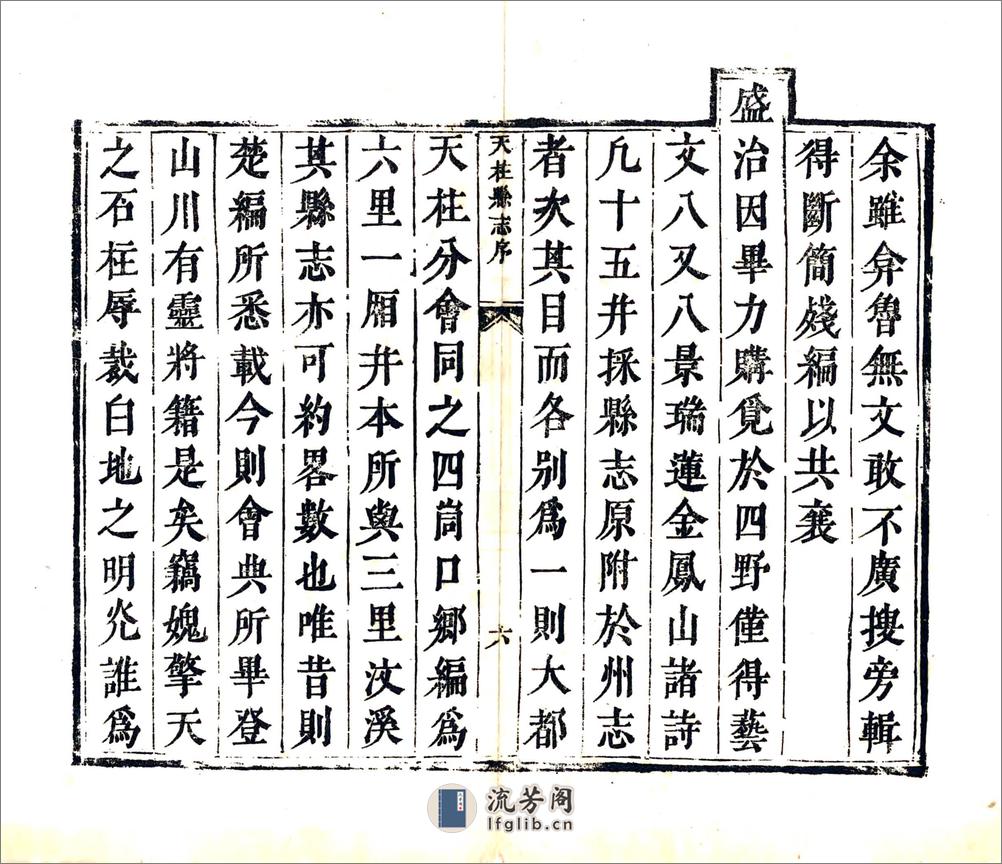 余雖弇魯無文敢不廣搜旁輯
得斷簡殘編以共襄
盛治因畢力購覓於四野僅得藝
文八又八景瑞蓮金鳳山諸詩
凢十五井採縣志原附於州志
者次其目而各别爲一則大都
天柱縣志序
六
天柱分會同之四峝口鄉編爲
六里一厢井本所與三里汶溪
其縣志亦可約畧數也唯昔則
楚編所悉載今則會典所畢登
山川有靈將籍是矣竊媿擎天
之石柱辱裁白地之明灮誰爲
流芳阁
lfglib.cn